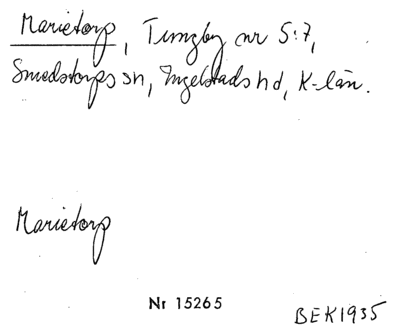 Marietorp, Tengby nr 5:7,
Smedstorps sn, Ingelstads hd, K-län.
Marietorp
Nr 15265
BEK1935